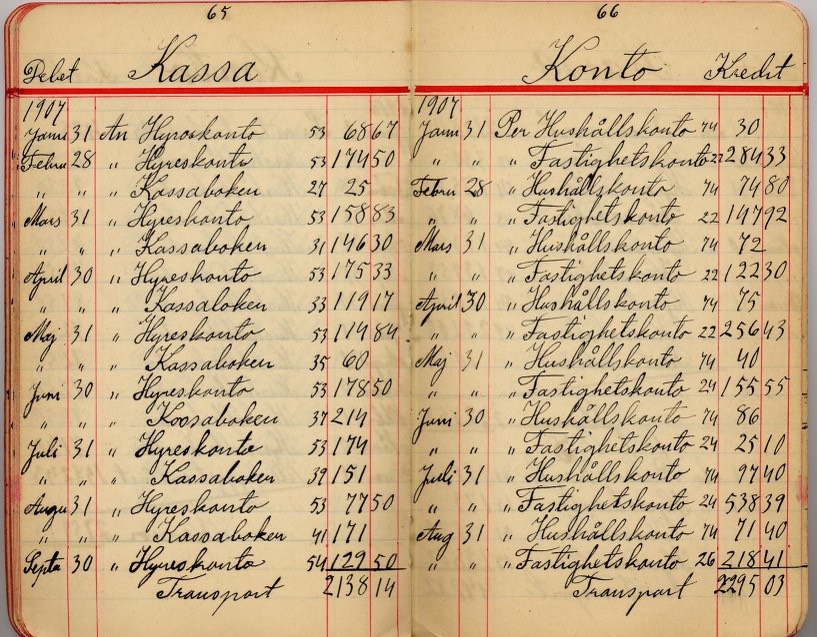 65
Debet Kassa
1907
Janu 31 An Hyreskonto 53 68 67
Febru 28 " Hyreskonto 53 174 50
" " " Kassaboken 27 25
Mars 31 " Hyreskonto 53 158 83
" " " Kassaboken 31 146 30
April 30 " Hyreskonto 53 175 33
" " " Kassaboken 33 119 17
Maj 31 " Hyreskonto 53 119 84
" " " Kassaboken 35 60
Juni 30 " Hyreskonto 53 178 50
" " " Kassaboken 37 214
Juli 31 " Hyreskonto 53 174
" " " Kassaboken 39 151
Augu 31 " Hyreskonto 53 77 50
" " " Kassaboken 41 171
Septe 30 " Hyreskonto 54 129 50
Transport 2138 14
66
Konto Kredit
1907
Janu 31 Per Hushållskonto 74 30
" " " Fastighetskonto 22 284 33
Febru 28 " Hushållskonto 74 74 80
" " " Fastighetskonto 22 147 92
Mars 31 " Hushållskonto 74 72
" " " Fastighetskonto 22 122 30
April 30 " Hushållskonto 74 75
" " " Fastighetskonto 22 256 43
Maj 31 " Hushållskonto 74 40
" " " Fastighetskonto 24 155 55
Juni 30 " Hushållskonto 74 86
" " " Fastighetskonto 24 25 10
Juli 31 " Hushållskonto 74 97 40
" " " Fastighetskonto 24 538 39
Aug 31 " Hushållskonto 74 71 40
" " " Fastighetskonto 26 218 41
Transport 2295 03